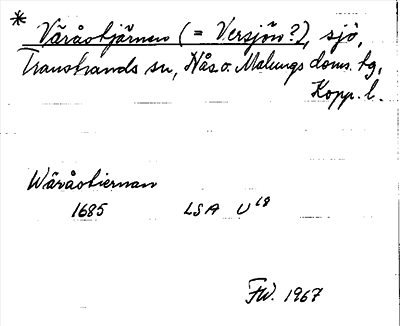 * Väråstjärnen (= Versjön?), sjö,
Transtrands sn, Nås o. Malungs doms. tg,
Kopp. l.
Wäråstiernan
1685 LSA U 68
FW. 1967